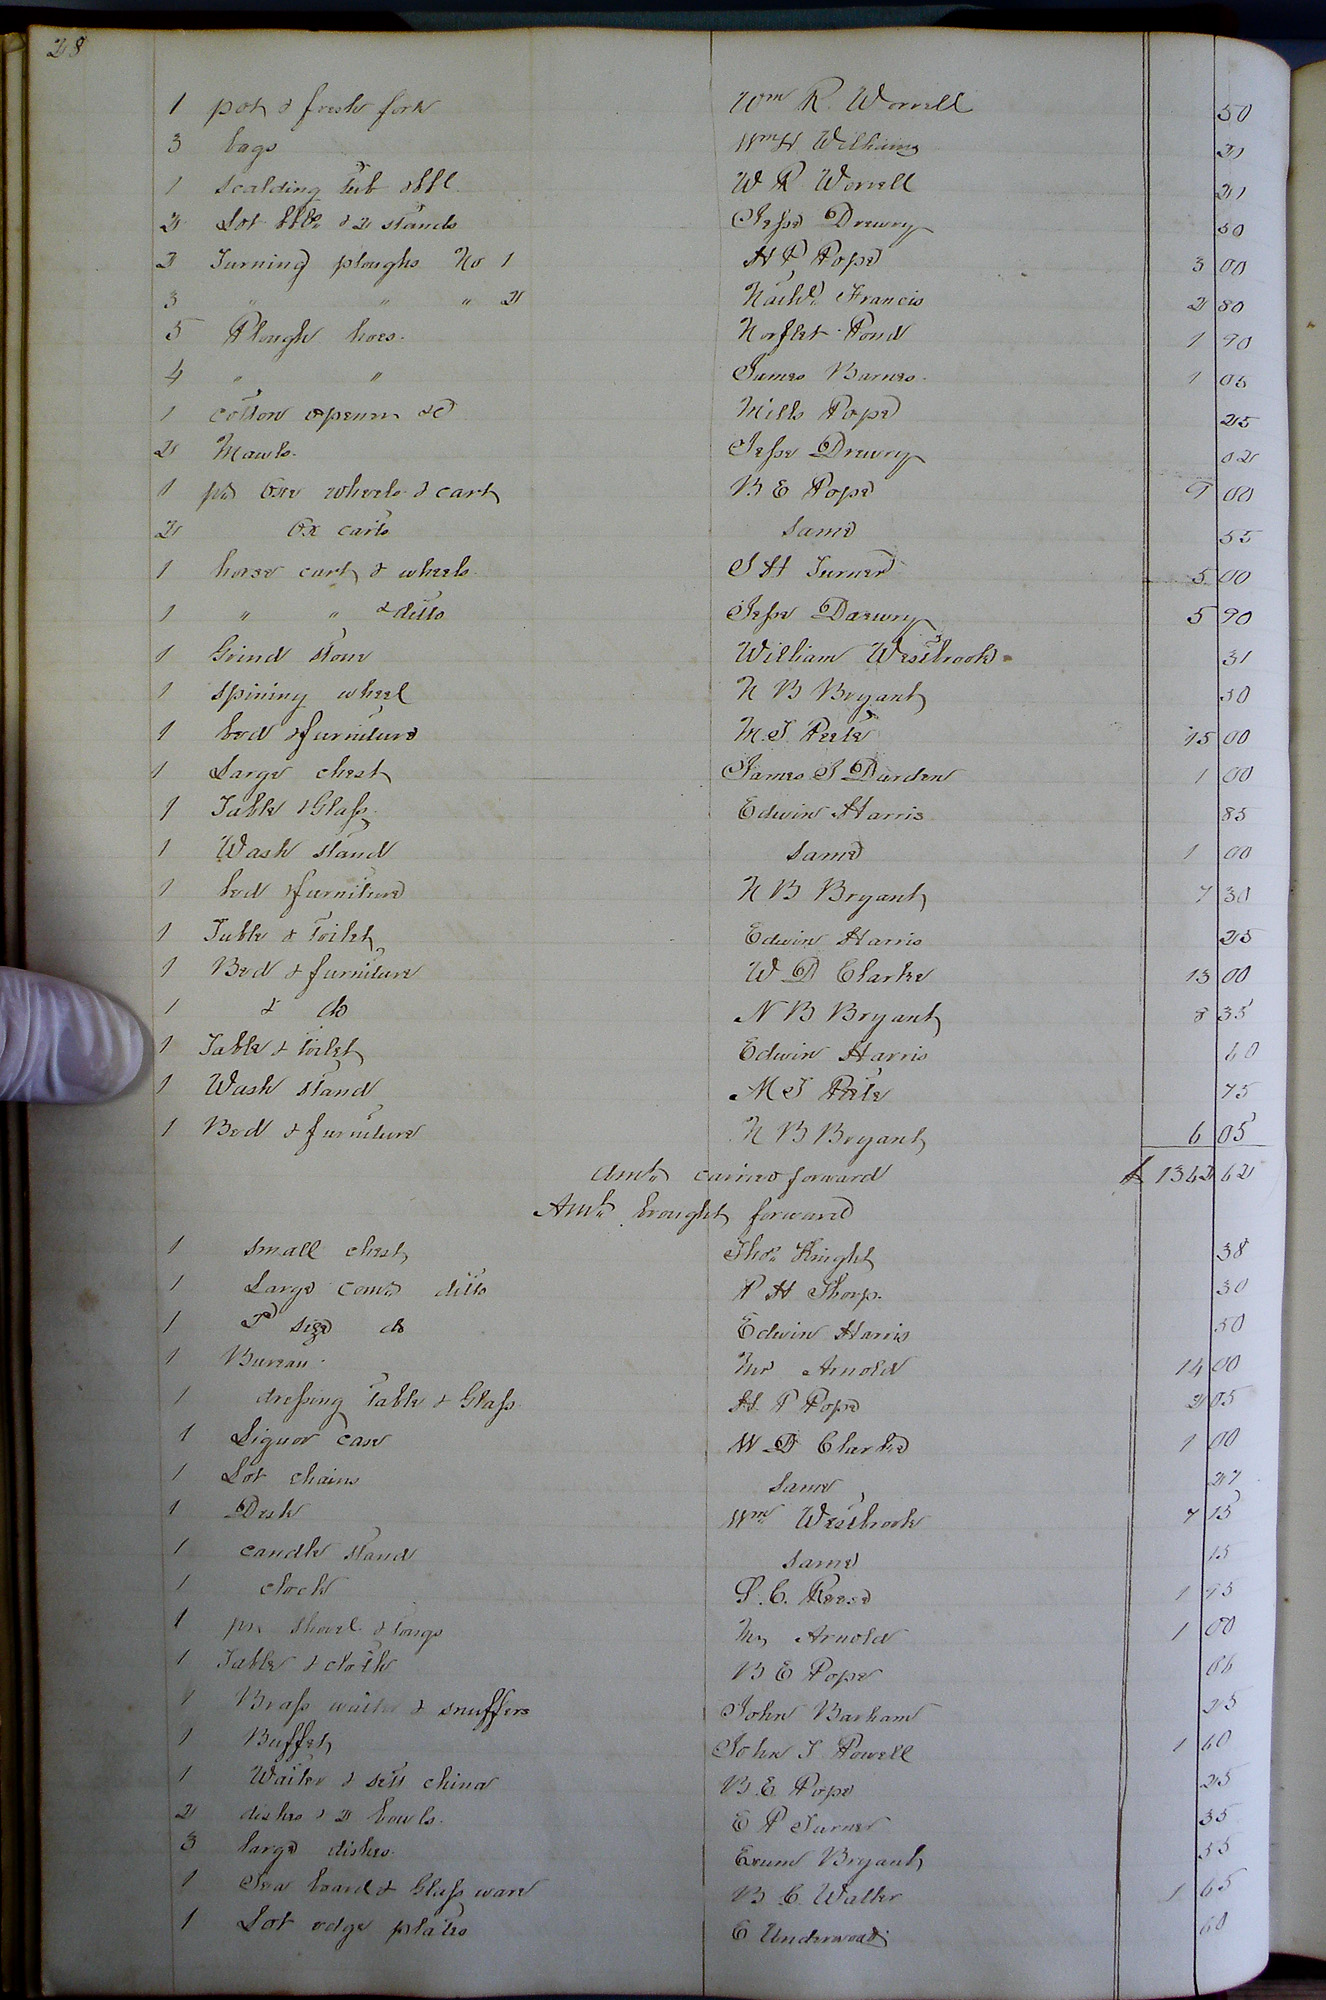 28
1 pot & fresh fork Wm R. Worrell 50
3 bags Wm H Williams 21
1 Scalding Tub & bbl. W R Worrell 21
2 Lot bbls & 2 stands Jesse Drewry 50
3 Turning ploughs No 1 H P Pope 3 00
3 " " " 2 Nathl. Francis 2 80
5 Plough hoes. Norflet Pond 1 90
4 " " James Barnes. 1 05
1 Cotton &c Mills Pope 25
2 Mawls. Jesse Drewry 02
1 pr Oxe wheels & cart B E Pope 9 00
2 Ox carts Same 55
1 horse cart & wheels. J H Turner 5 00
1 " " & ditto Jesse Drewry 5 90
1 Grind Stone William Westbrook 31
1 Spining wheel N B Bryant 50
1 bed & furniture M. T. Peete 15 00
1 Large chest James S Darden 1 00
1 Table & Glass. Edwin Harris 85
1 Wash stand Same 1 00
1 bed & furniture N B Bryant 7 30
1 Table & Toilet Edwin Harris 25
1 Bed & furniture W D Clarke 13 00
1 & do N B Bryant 8 35
1 Table & toilet Edwin Harris 60
1 Wash stand M T Peete 75
1 Bed & furniture N B Bryant 6 05
Amt. carried forward $ 1362 62
Amt. brought forward
1 Small chest Thos. Knight 38
1 Large comn. ditto P H Thorp. 30
1 size do Edwin Harris 50
1 Bureau. Mr Arnold 14 00
1 dressing Table & Glass H. P Pope 2 05
1 Liquor case W D Clarke 1 00
1 Lot chains Same 27
1 Desk Wm Westbrook 7 15
1 candle stand Same 15
1 clock S. C. Reese 1 95
1 pr. shovel & tongs Mr Arnold 1 00
1 Table & cloth B E Pope 66
1 Brass waiter & snuffers John Barham 25
1 Buffet John T. Powell 1 60
1 Waiter & sett china B. E. Pope 25
2 dishes & 2 bowls. E P Turner 35
3 large dishes. Exum Bryant 55
1 Tea board & Glass ware B C. Waller 1 65
1 Lot edge plates C Underwood 60